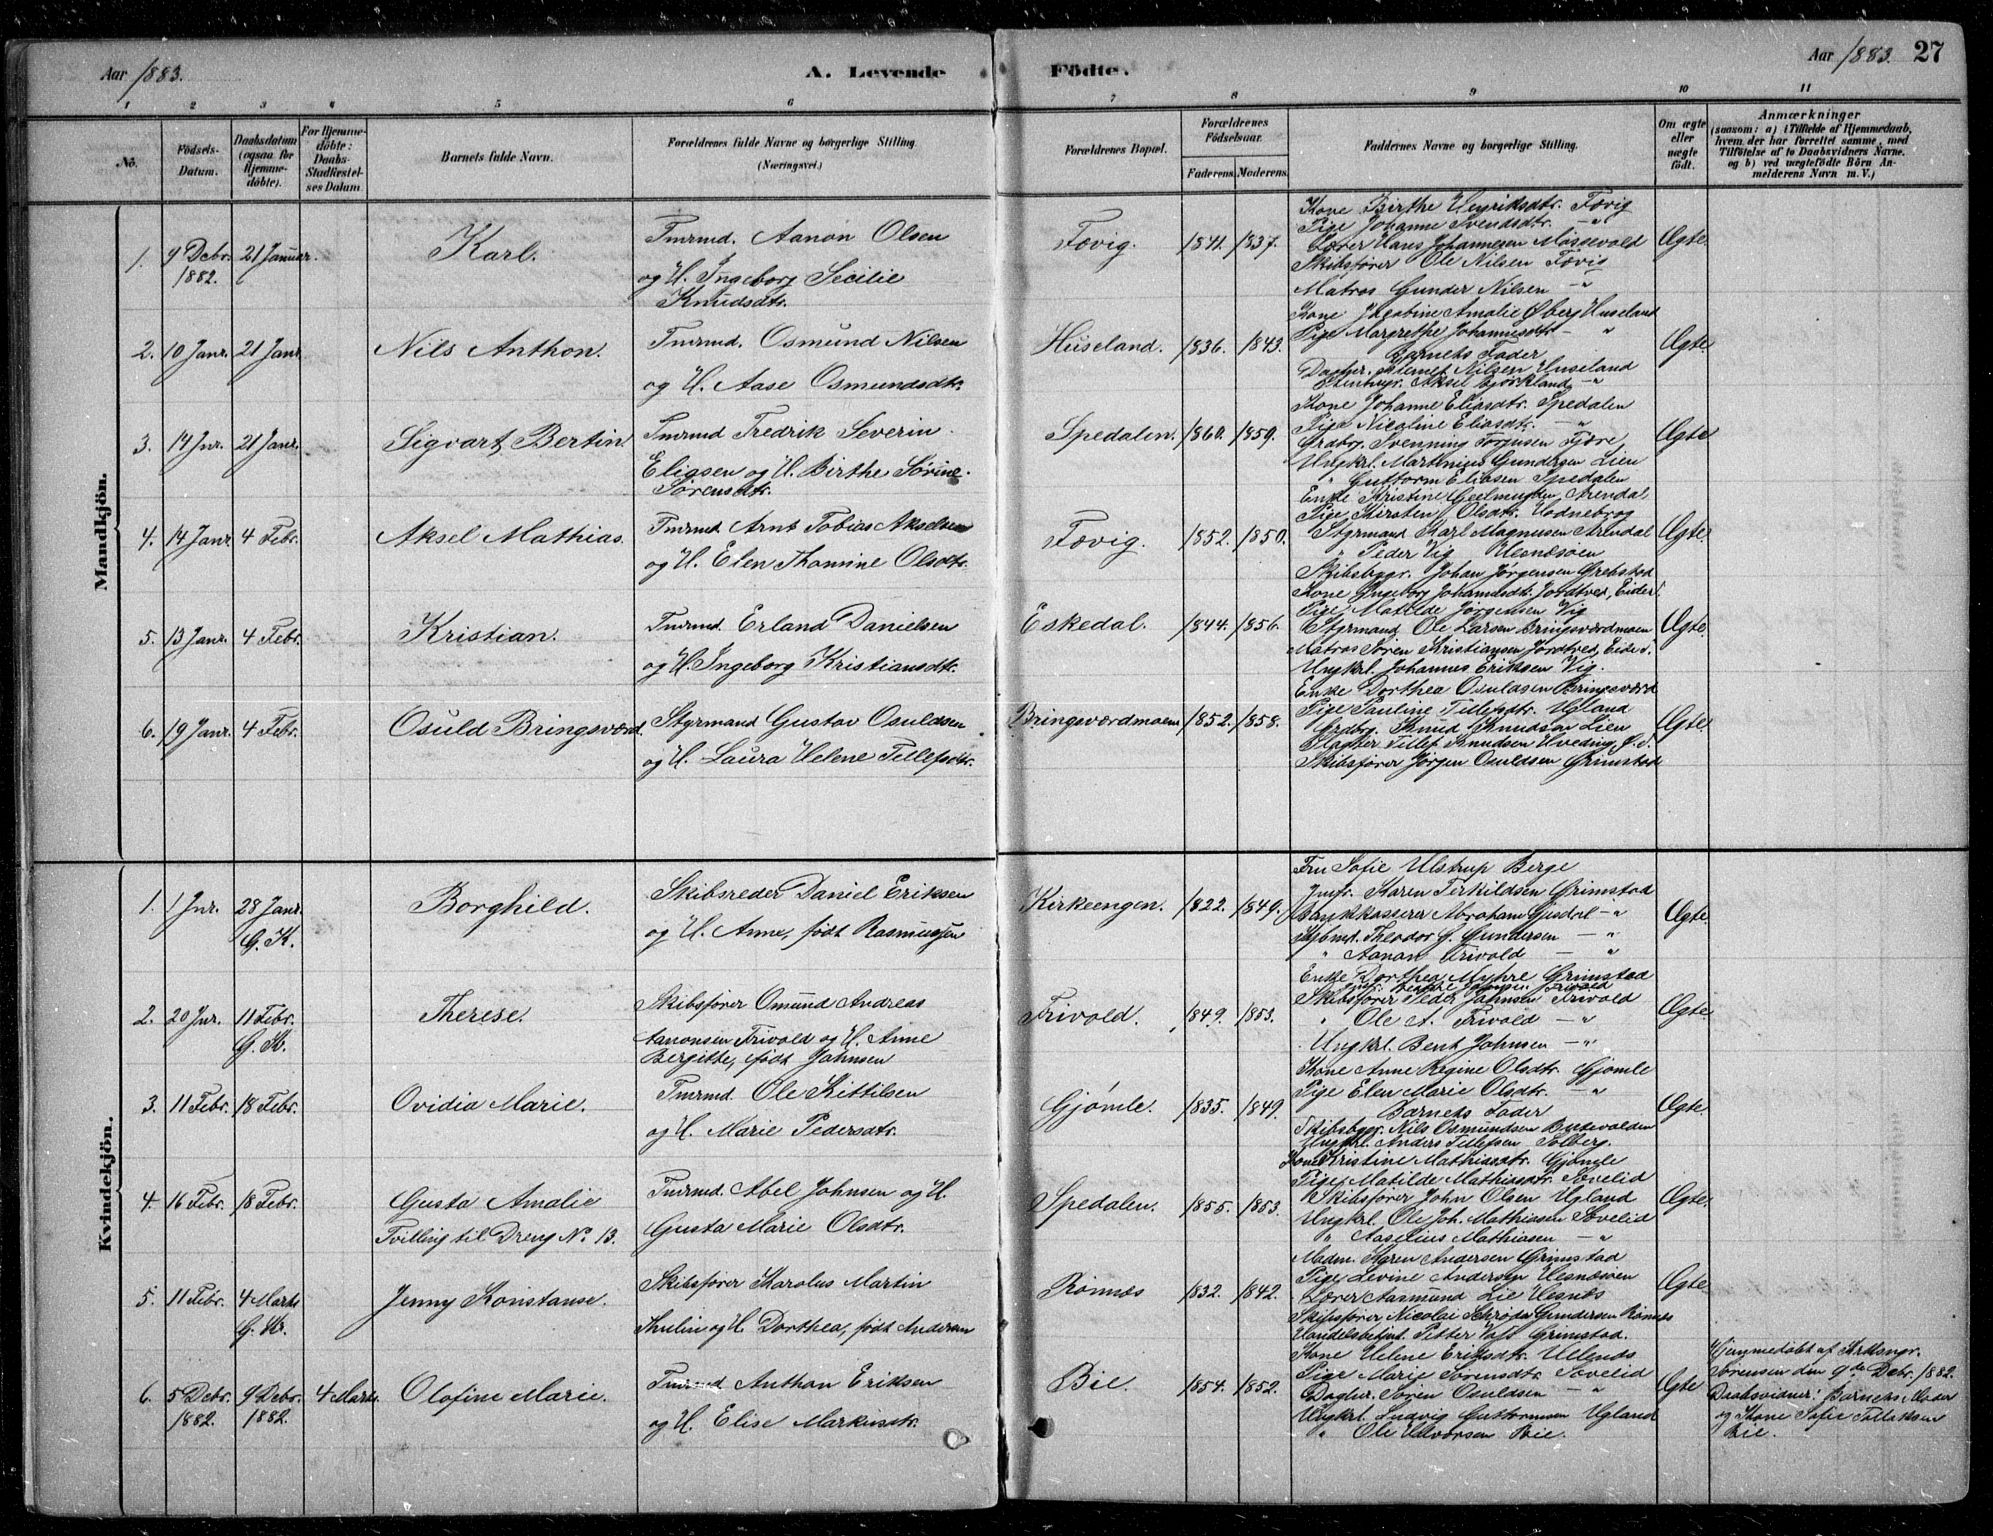 Aar 1883.
A. Levende Födte.
Aar 1883. 27
1 2 3 4 5 6 7 8 9 10 11
No.
Födsels-Datum.
Daabsdatum (ogsaa for Hjemmedöbte).
For Hjemmedöbte: Daabs-Stadfæstelses Datum.
Barnets fulde Navn.
Forældrenes fulde Navne og borgerlige Stilling. (Næringsvei.)
Forældrenes Bopæl.
Forældrenes Födselsaar.
Faderens. Moderens.
Faddernes Navne og borgerlige Stilling.
Om ægte eller uægte födt.
Anmærkninger
(saasom: a) i Tilfælde af Hjemmedaab, hvem der har forrettet samme, med Tilföielse af to Daabsvidners Navne, og b) ved uægtefödte Börn Anmelderens Navn m. V.)
Mandkjön.
1. 9 Debr. 1882. 21 Januar. Karl. Tmrmd. Aanon Olsen
og H. Ingeborg Secilie
Knudsdtr.
Fævig. 1841. 1837.
Kone Birthe Henriksdtr. Fævig
Pige Johanne Svendsdtr. —„
Lærer Hans Johannesen Møssevold
Skibsfører Ole Nilsen Fævig
Matros Gunder Nilsen —„
Ægte.
2. 10 Janr. 21 Janr. Nils Anthon. Tmrmd. Osmund Nilsen
og H. Aase Osmundsdtr.
Huseland. 1836. 1843.
Kone Jagobine Amalie Øberg Huseland
Pige Margrethe Johannesdtr. — „
Barnets Fader
Nilsen Huseland
Aksel Bjørklund —„
Ægte
3. 14 Jnr. 21 Janr. Sigvart Bertin. Tmrmd Fredrik Severin
Eliasen og H. Birthe Sørine
Sørensdtr.
Spedalen. 1860. 1859.
Kone Johanne Eliasdtr. Spedalen
Pige Nicoline Eliasdtr. —„
Grdbrg. Svenning Tørgensen Fjære
Ungkrl. Martinius Gundersen Lien
„ Guttorm Eliasen Spedalen
Ægte
4. 14 Janr. 4 Febr. Aksel Mathias. Tmrmd Arnt Tobias Akselsen
og H. Elen Thomine Olsdtr.
Fævig. 1852. 1850.
Enke Kristine Geelmuyden Arendal
Pige Kirsten Olsdtr. Uodnebrog
Styrmand Karl Magnusen Arendal
„ Peder Vig Hesnæsøen
Skibsbygr. Johan Jørgensen Grebstad
Ægte.
5. 13 Janr. 4 Febr. Kristian. Tmrmd. Erland Danielsen
og H. Ingeborg Kristiansdtr.
Eskedal. 1844. 1856.
Kone Ingeborg Johannesdt. Jordtved, Eider.
Pige Matilde Jørgensen Vig
Styrmand Ole Larsen Bringsværdmoen
Matros Søren Kristiansen Jordtved, Eide s.
Ungkrl. Johannes Eriksen Vig.
Ægte.
6. 19 Janr. 4 Febr. Osuld Bringsværd. Styrmand Gustav Osuldsen
og H. Laura Helene Tellefsdtr.
Bringsværdmoen 1852. 1858.
Enke Dorthea Osuldsen Bringsværd
Pige Pauline Tellefsdtr. Ugland
Grdbrg. Knud Knudsen Lien
Slagter Tellef Knudsen Hveding, Ø. S.
Skibsfører Jørgen Osuldsen Grimstad
Ægte.
Kvindekjön.
1. 1 Jnr. 28 Janr. G. K. Borghild. Skibsreder Daniel Eriksen
og H. Anne, født Rasmussen
Kirkeengen. 1822. 1849.
Fru Sofie Ulstrup Berge
Jmfr. Karen Terkildsen Grimstad
Bankkasserer Abraham Gusdal —„
Theodor G. Gundersen — „
„ Aanon Frivold — „
Ægte.
2. 20 Jnr. 11 Febr. G. K. Therese. Skibsfører Omund Andreas
Aanonsen Frivold og H. Anne
Bergitte, født Johnsen
Frivold. 1849. 1853.
Enke Dorthea Myhre Grimstad
Skibsfører Peder Johnsen Frivold
„ Ole A. Frivold —„
Ungkrl. Bent Johnsen —„
Ægte.
3. 11 Febr. 18 Febr. Ovidia Marie. Tmrmd. Ole Kittilsen
og H. Marie Pedersdtr.
Gjømle. 1835. 1849.
Kone Anne Regine Olsdtr. Gjømle
Pige Elen Marie Olsdtr. —„
Barnets Fader
Skibsbygr. Nils Osmundsen Butevolden
Ungkrl. Anders Tellefsen Solberg.
Ægte.
4. 16 Febr. 18 Febr. Gusta Amalie
Tvilling til Dreng No. 13.
Tmrmd. Abel Johnsen og H.
Gusta Marie Olsdtr.
Spedalen. 1855. 1853.
Kone Kristine Mathiasdtr. Gjømle
Pige Matilde Mathiasdtr. Søvelid
Skibsfører John Olsen Ugland
Ungkrl. Ole Joh. Mathiasen Søvelid
„ Aaselius Mathiasen —„
Ægte.
5. 11 Febr. 4 Marts G. K. Jenny Konstanse. Skibsfører Karolus Martin
Thulin og H. Dorthea, født Andersen
Rønnæs 1832. 1842.
Madm. Karen Andersen Grimstad
Pige Levine Andersen Hesnæsøen
Lærer Aasmund Lie Hesnæs
Skibsfører Nicolai Schrøder Gundersen Rønnes
Handelsbetjnt. Petter Grimstad.
Ægte.
6. 5 Debr. 1882. 9 Debr. 1882. 4 Marts. Olofine Marie. Tmrmd Anthon Eriksen
og H. Elise Markusdtr.
Bie. 1854. 1852.
Kone Helene Eriksdtr. Uelands
Pige Marie Sørensdtr. Søvelid
Daglnr. Søren Osuldsen —„
Ungkrl. Ludvig Guttormsen Ugland
„ Ole Halvorsen Bie.
Ægte
Hjemmedøbt af Krksngr.
Sørensen den 9de Debr. 1882.
Daabsvidner: Barnets Moder
og Kone Sofie Tallaksen
Bie.